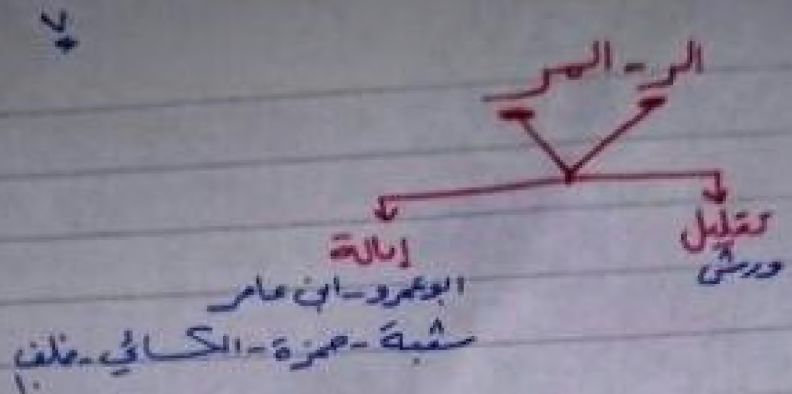 ٧
الر - المر
تقليل
ورش
إمالة
ابوعمرو - ابن عامر
شعبة - حمزة - الكسائي - خلف
١٠